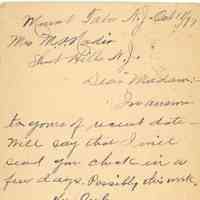 Mount Tabor N.J. Oct 11/97
Mrs M. Hardin
Short Hills N.J.
Dear Madam:
In answer
to yours of recent date -
Will say that I will
send you check in a
few days. Possibly this week.